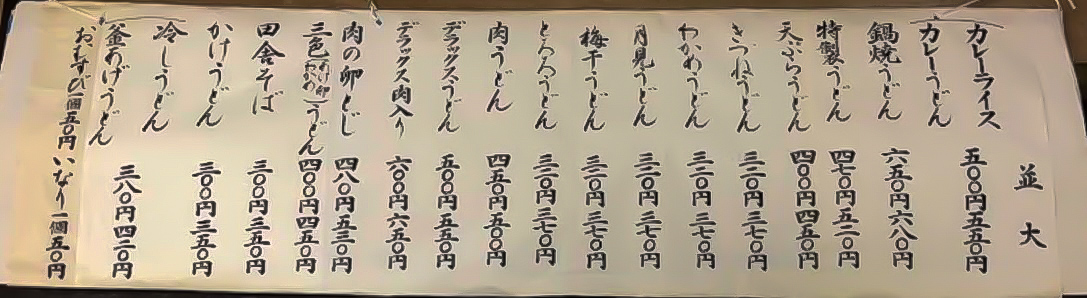 並 大
カレーライス 五〇〇円 五五〇円
カレーうどん
鍋焼うどん 六五〇円 六八〇円
特製うどん 四七〇円 五二〇円
天ぷらうどん 四〇〇円 四五〇円
きつねうどん 三二〇円 三七〇円
わかめうどん 三二〇円 三七〇円
月見うどん 三二〇円 三七〇円
梅干うどん 三二〇円 三七〇円
とろろうどん 三二〇円 三七〇円
肉うどん 四五〇円 五〇〇円
デラックスうどん 五〇〇円 五五〇円
デラックス肉入り 六〇〇円 六五〇円
肉の卵とじ 四八〇円 五三〇円
三色(あげ 卵 わかめ)うどん 四〇〇円 四五〇円
田舎そば 三〇〇円 三五〇円
かけうどん 三〇〇円 三五〇円
冷しうどん
釜あげうどん 三八〇円 四二〇円
おむすび一個五〇円 いなり一個五〇円